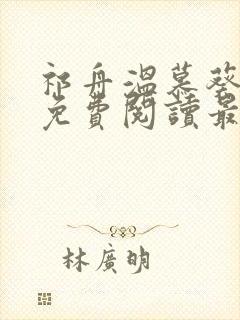 祁舟溫慕葵
免費閱讀最
林廣明